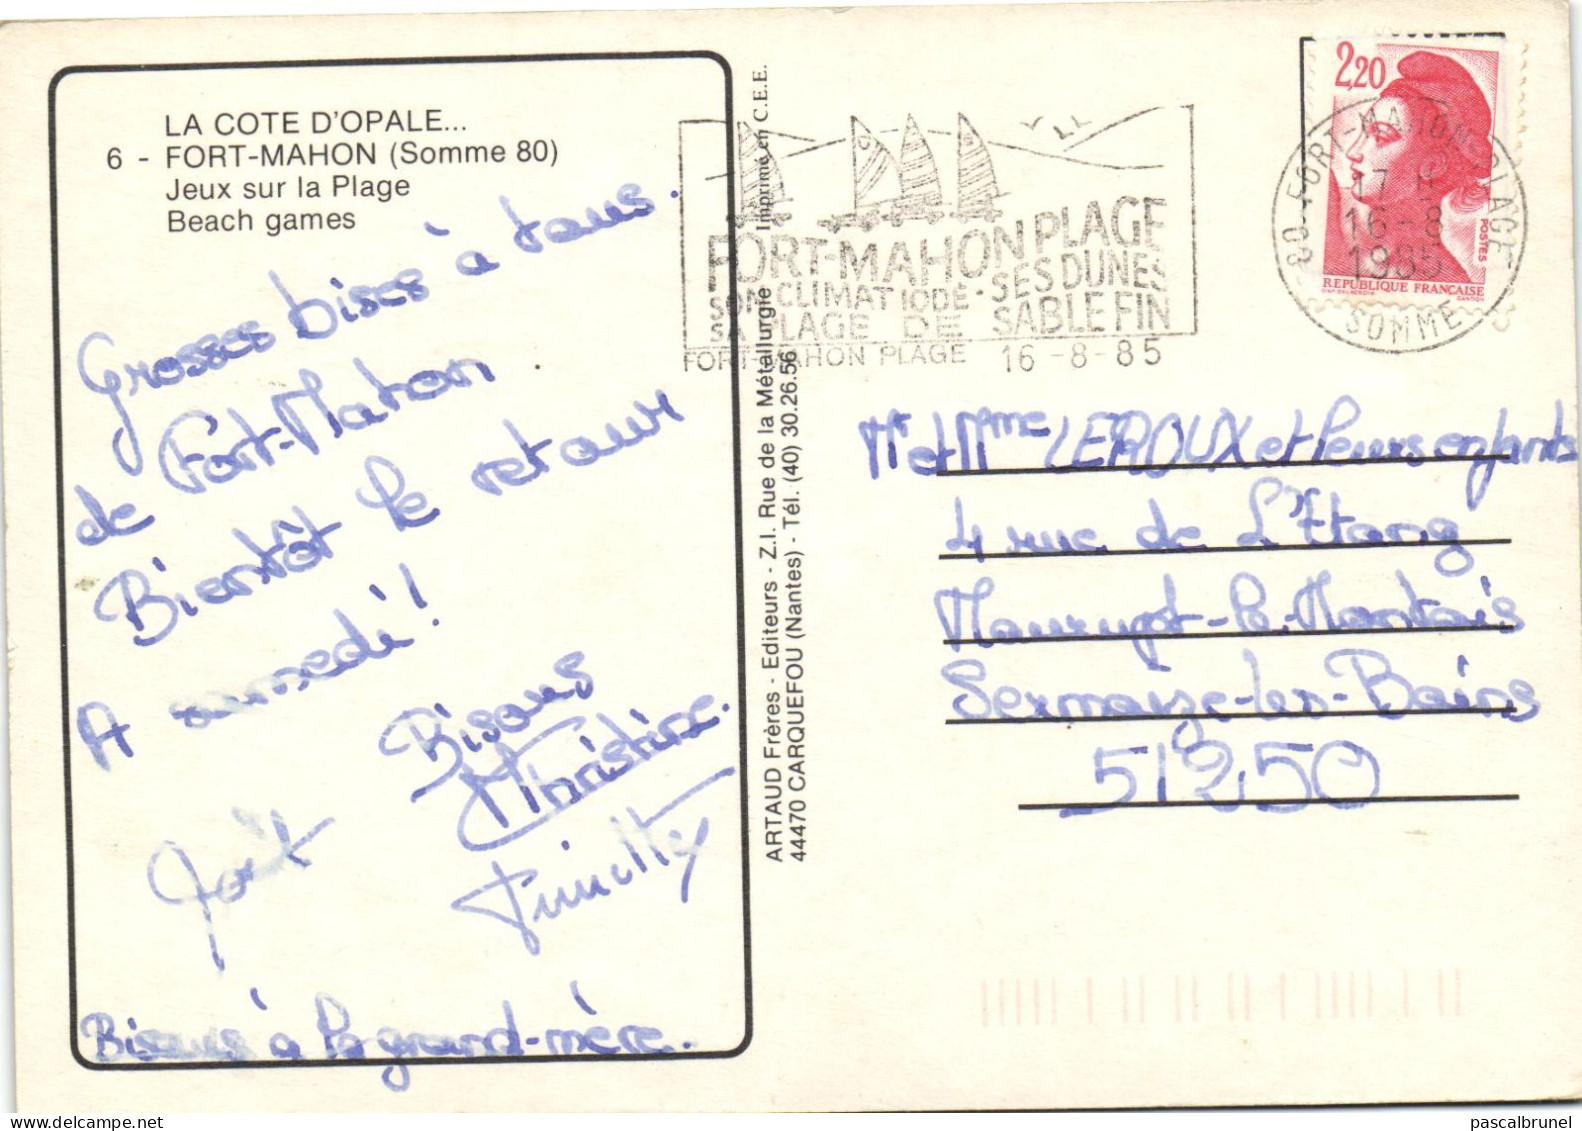 LA COTE D'OPALE...
6 - FORT-MAHON (Somme 80)
Jeux sur la Plage
Beach games
Grosses bises à tous.
de Fort-Mahon
Bientôt le retour
A samedi !
Bisous
Christine.
Joël
Bisous à la grand-mère.
ARTAUD Frères - Editeurs - Z.I. Rue de la Métallurgie Imprimé en C.E.E.
44470 CARQUEFOU (Nantes) - Tél. (40) 30.26.56
FORT-MAHON PLAGE
SON CLIMAT IODE - SES DUNES
SA PLAGE DE SABLE FIN
FORT-MAHON PLAGE 16-8-85
2,20
POSTES
REPUBLIQUE FRANÇAISE
80-FORT-MAHON-PLAGE
17 H
16-8
1985
SOMME
Mr et Mme LEROUX et leurs enfants
4 rue de L'Etang
Maurupt-le-Montois
Sermaize-les-Bains
51250
pascalbrunel